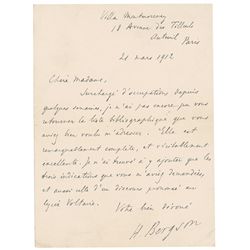 Villa Montmorency
18 Avenue des Tilleuls
Auteuil
Paris
21 mars 1912
Chère Madame,
Surchargé d'occupations depuis
quelques semaines, je n'ai pas encore pu vous
retourner la liste bibliographique que vous
aviez bien voulu m'adresser. Elle est
remarquablement complète, et visiblement
excellente. Je n'ai trouvé à y ajouter que les
trois indications que vous m'avez demandées,
et aussi celle d'un discours prononcé au
lycée Voltaire.
Votre bien dévoué
H Bergson